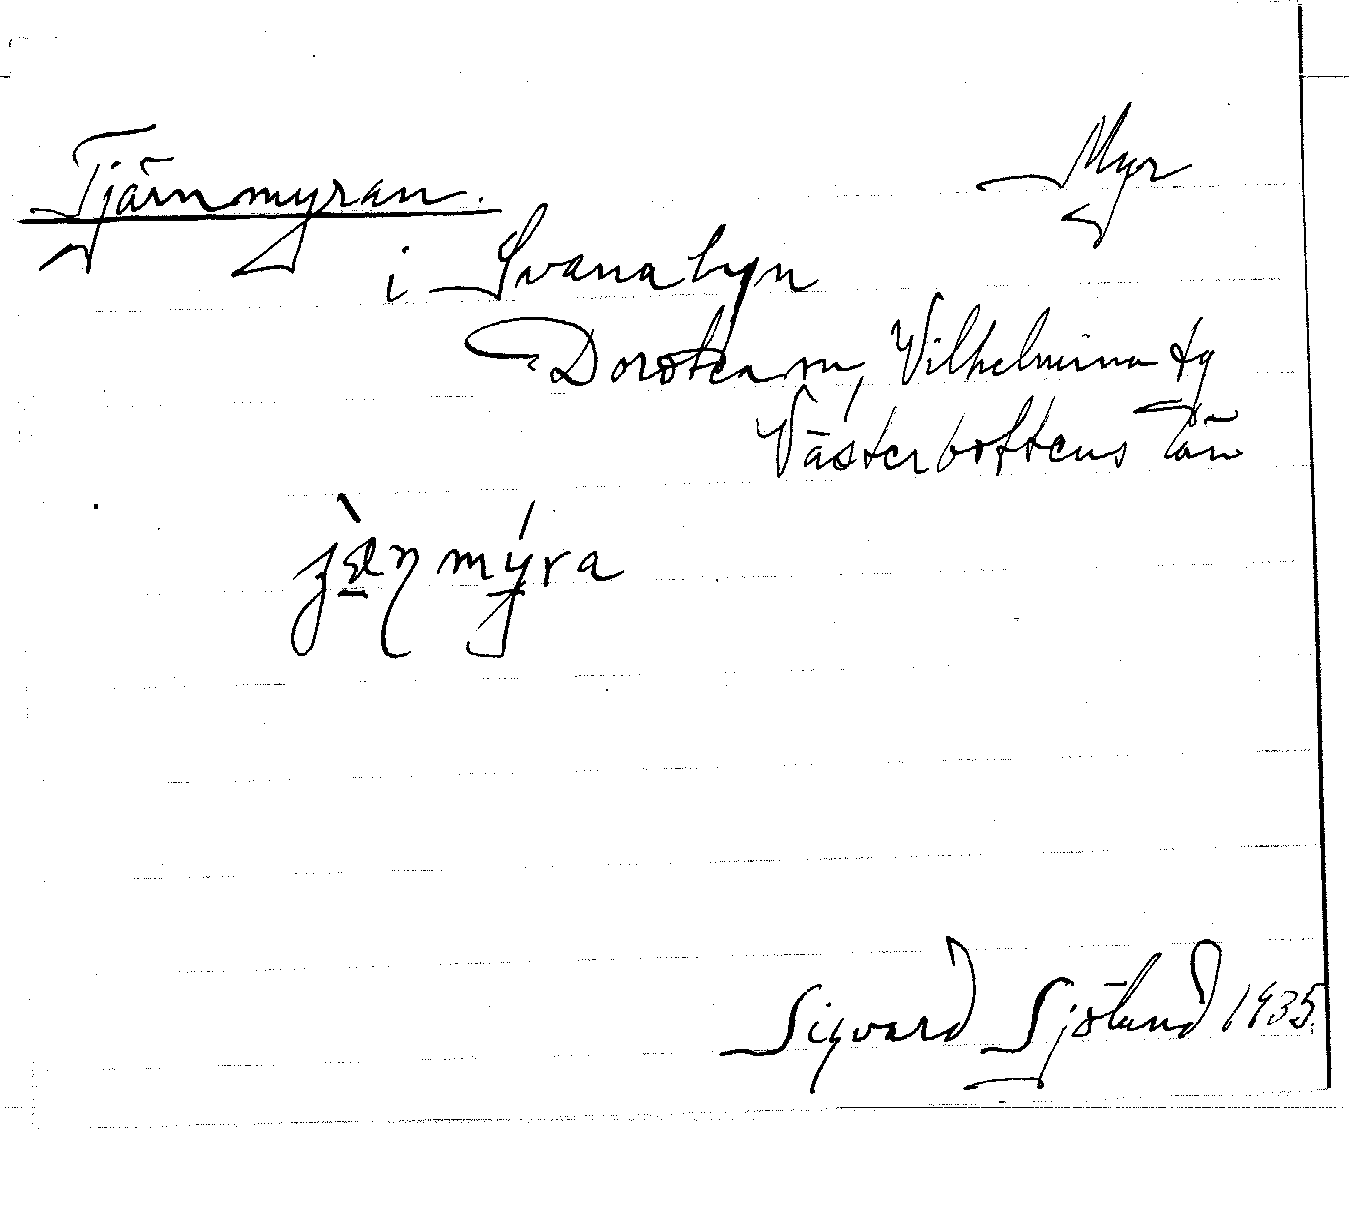 Tjärnmyran. Myr
i Svanabyn
Dorotea sn, Vilhelmina tg
Västerbottens län
mýra
Sigvard Sjölund 1935.